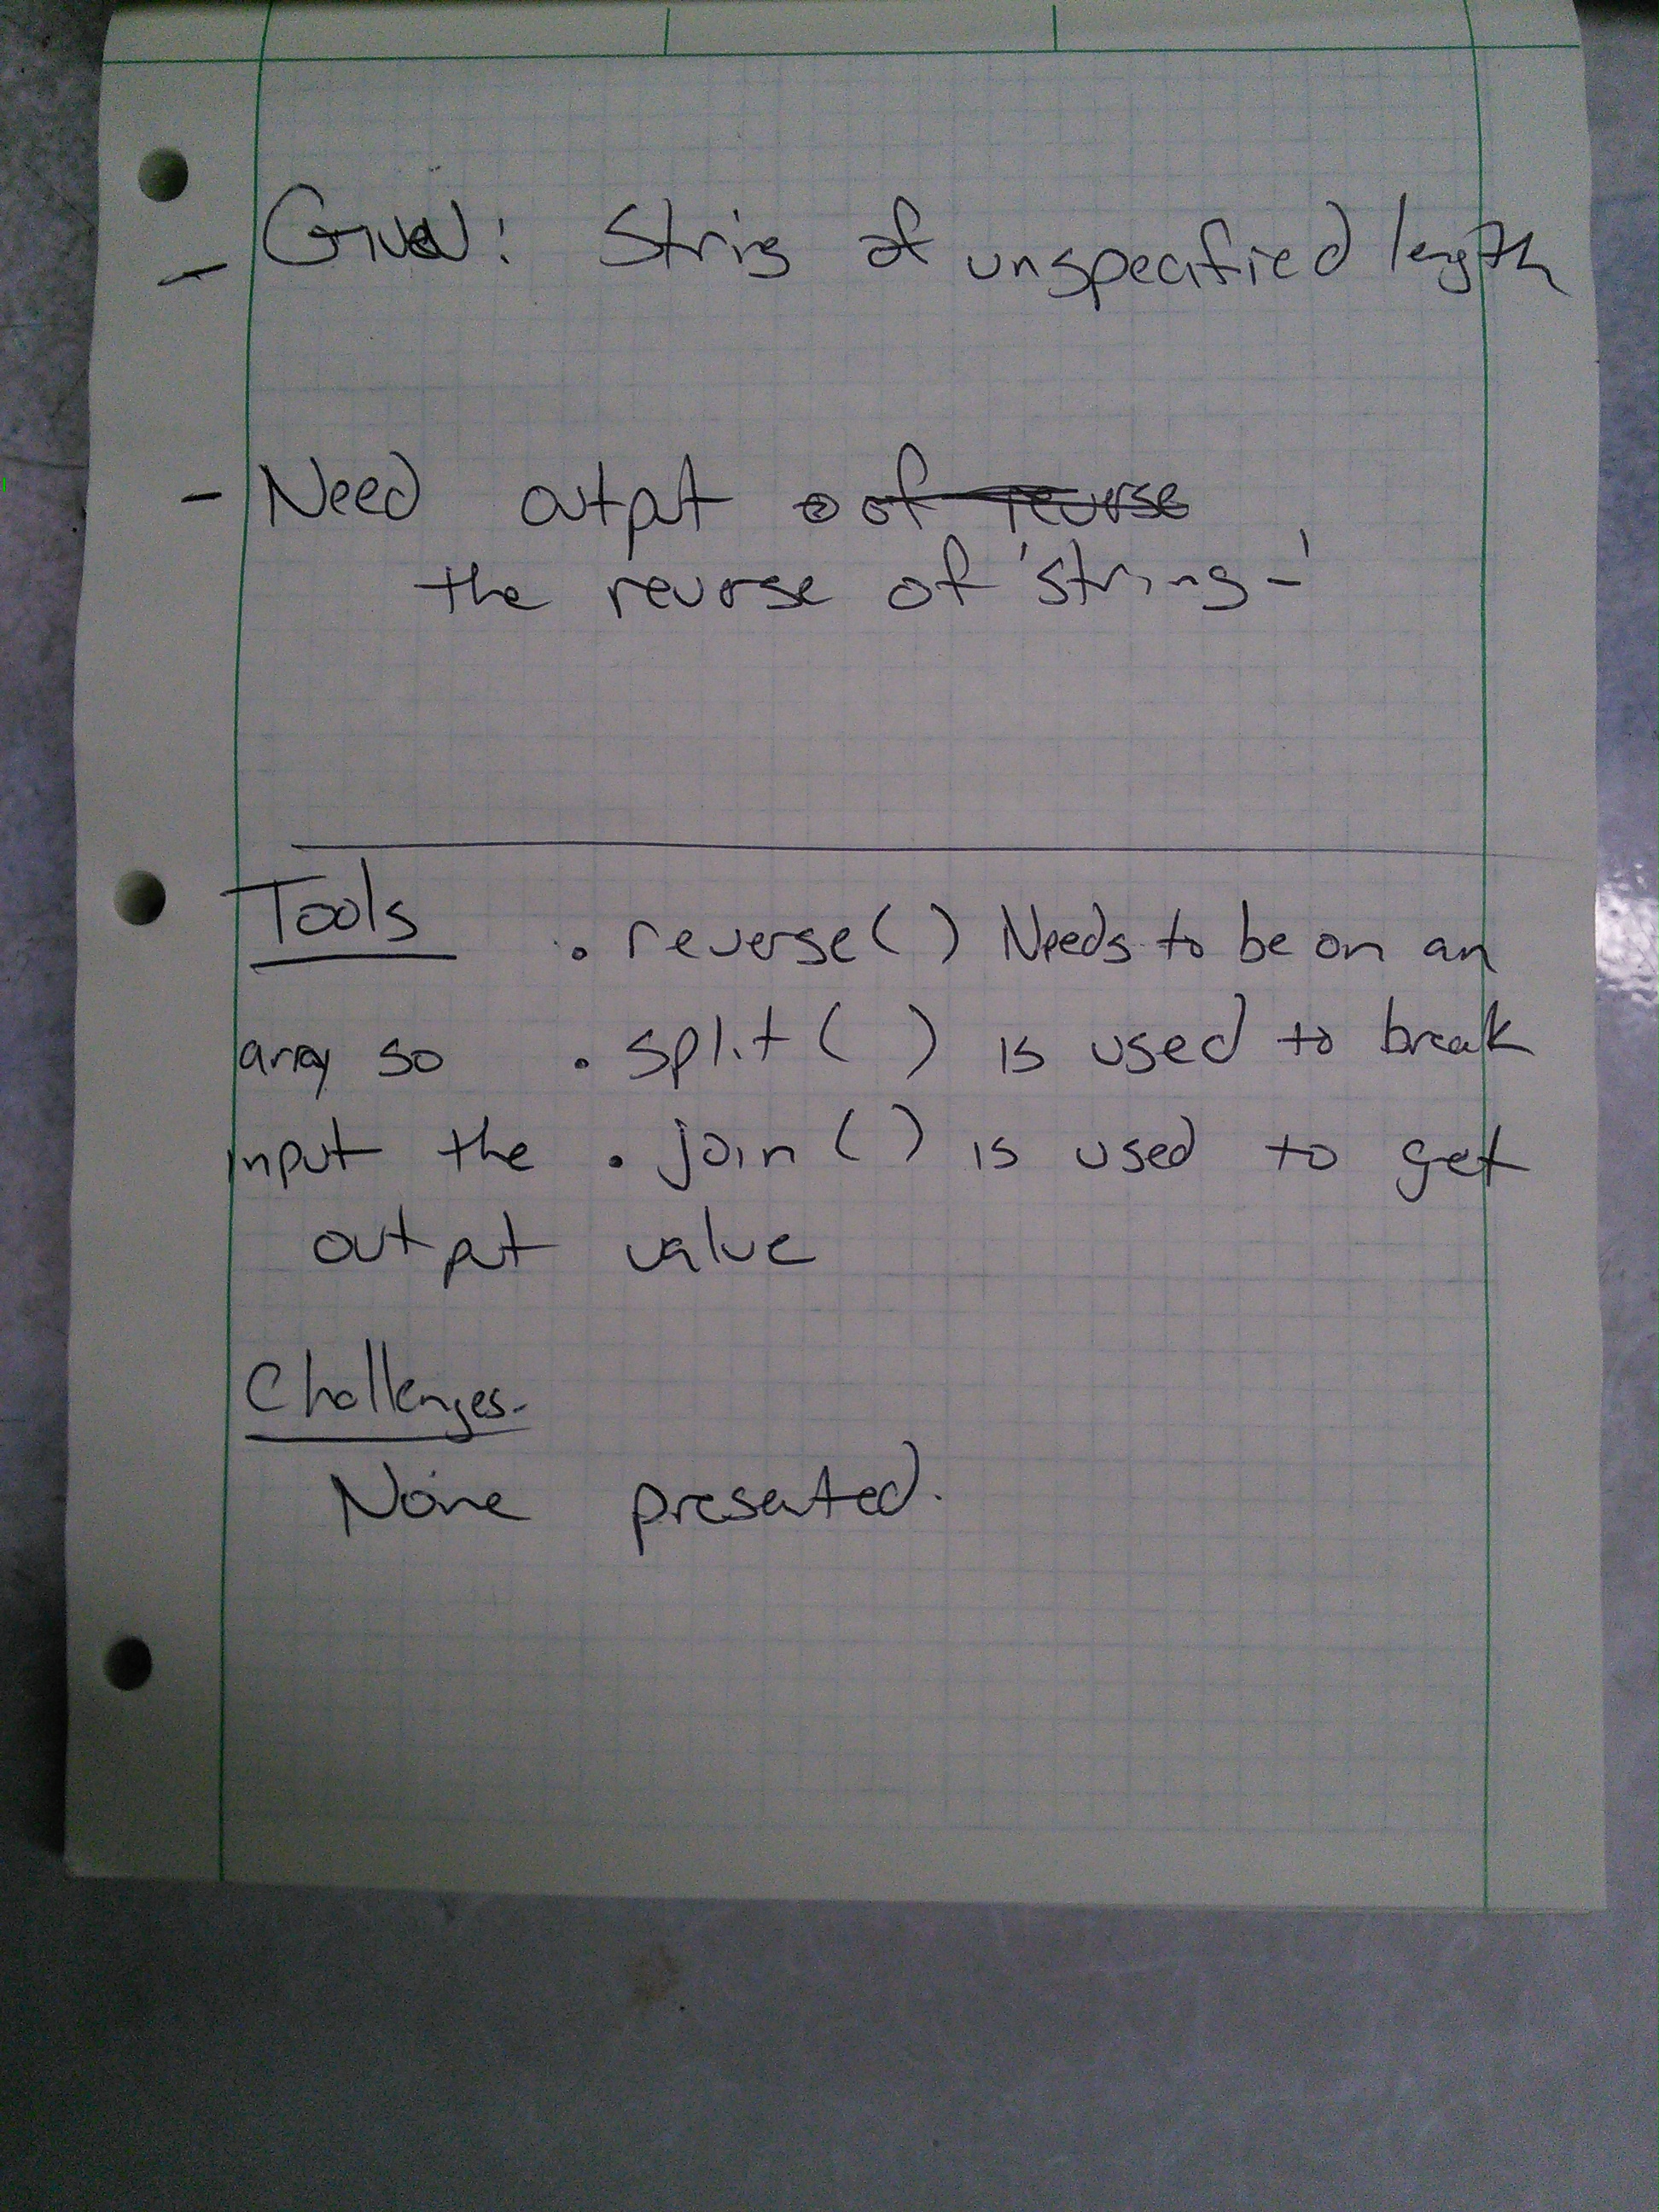 - Given: String of unspecified length
- Need output of reverse
the reverse of 'string-'
Tools .reverse() Needs to be on an
array so .split( ) is used to break
input the .join() is used to get
output value
Challenges-
None presented.